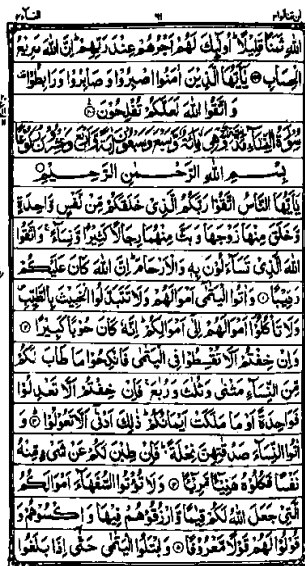 اللهِ ثَمَنًا قَلِيلًا أُولٰٓئِكَ لَهُمْ أَجْرُهُمْ عِنْدَ رَبِّهِمْ إِنَّ اللهَ سَرِيعُ
الْحِسَابِ يٰٓأَيُّهَا الَّذِينَ اٰمَنُوا اصْبِرُوا وَصَابِرُوا وَرَابِطُوا
وَاتَّقُوا اللهَ لَعَلَّكُمْ تُفْلِحُونَ
سُورَةُ النِّسَاءِ
بِسْمِ اللهِ الرَّحْمٰنِ الرَّحِيمِ
يٰٓأَيُّهَا النَّاسُ اتَّقُوا رَبَّكُمُ الَّذِي خَلَقَكُمْ مِّنْ نَّفْسٍ وَّاحِدَةٍ
وَّخَلَقَ مِنْهَا زَوْجَهَا وَبَثَّ مِنْهُمَا رِجَالًا كَثِيرًا وَّنِسَاءً وَاتَّقُوا
اللهَ الَّذِي تَسَاءَلُونَ بِهِ وَالْأَرْحَامَ إِنَّ اللهَ كَانَ عَلَيْكُمْ
رَقِيبًا وَاٰتُوا الْيَتٰمٰى أَمْوَالَهُمْ وَلَا تَتَبَدَّلُوا الْخَبِيثَ بِالطَّيِّبِ
وَلَا تَأْكُلُوا أَمْوَالَهُمْ إِلٰى أَمْوَالِكُمْ إِنَّهُ كَانَ حُوبًا كَبِيرًا
وَإِنْ خِفْتُمْ أَلَّا تُقْسِطُوا فِي الْيَتٰمٰى فَانْكِحُوا مَا طَابَ لَكُمْ
مِّنَ النِّسَاءِ مَثْنٰى وَثُلٰثَ وَرُبٰعَ فَإِنْ خِفْتُمْ أَلَّا تَعْدِلُوا
فَوَاحِدَةً أَوْ مَا مَلَكَتْ أَيْمَانُكُمْ ذٰلِكَ أَدْنٰى أَلَّا تَعُولُوا وَ
اٰتُوا النِّسَاءَ صَدُقٰتِهِنَّ نِحْلَةً فَإِنْ طِبْنَ لَكُمْ عَنْ شَيْءٍ مِّنْهُ
نَفْسًا فَكُلُوهُ هَنِيئًا مَّرِيئًا وَلَا تُؤْتُوا السُّفَهَاءَ أَمْوَالَكُمُ
الَّتِي جَعَلَ اللهُ لَكُمْ قِيٰمًا وَّارْزُقُوهُمْ فِيهَا وَاكْسُوهُمْ وَ
قُولُوا لَهُمْ قَوْلًا مَّعْرُوفًا وَابْتَلُوا الْيَتٰمٰى حَتّٰى إِذَا بَلَغُوا